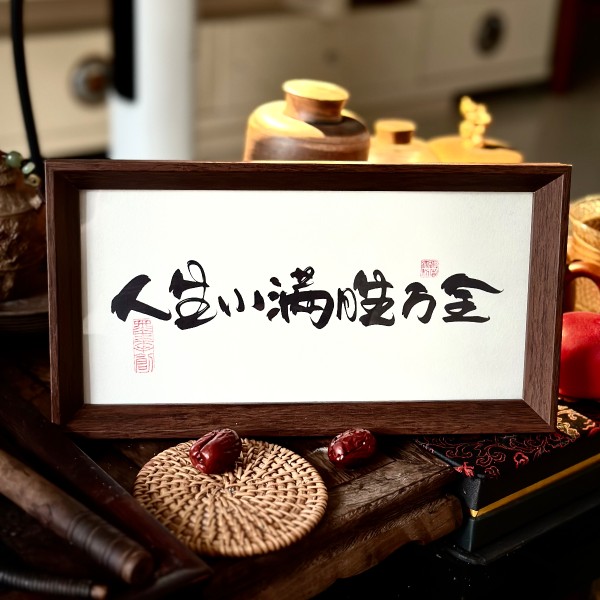 人生小满胜万全